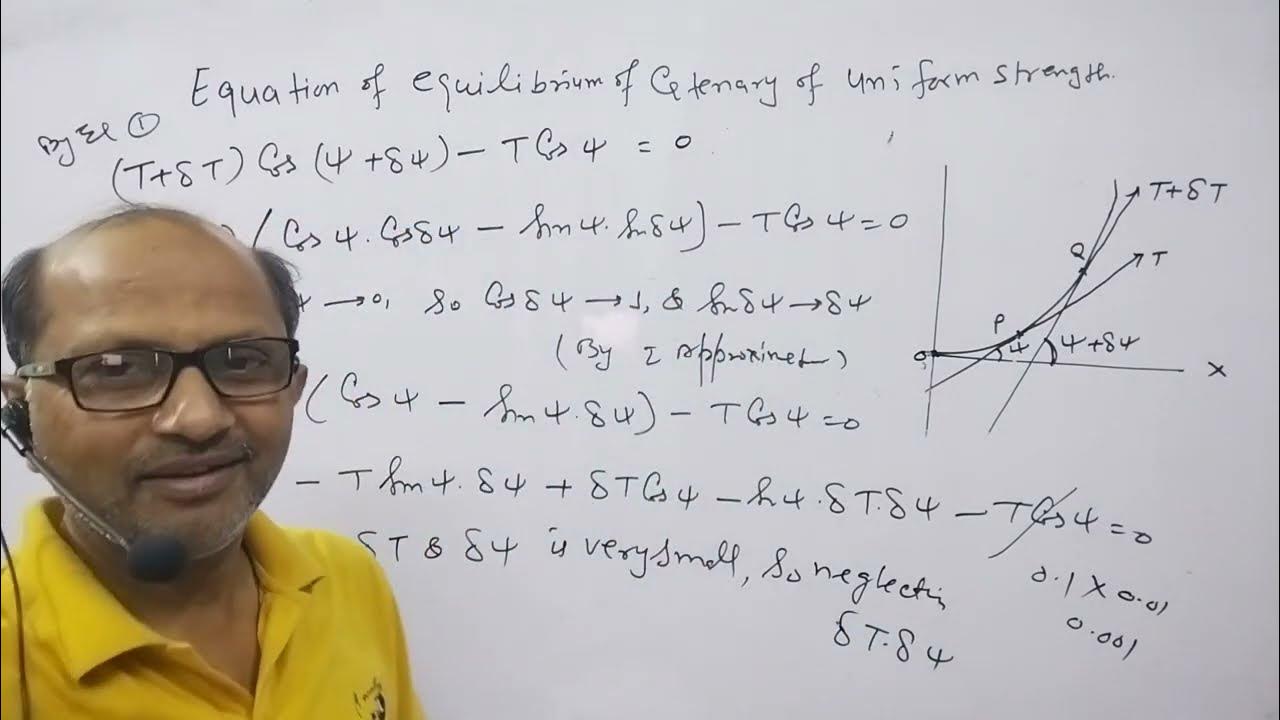 Equation of equilibrium of Catenary of uniform strength.
By Eq ①
(T+δT) Cos (Ψ+δΨ) – T Cos Ψ = 0
(Cos Ψ. Cos δΨ – Sin Ψ. Sin δΨ) – T Cos Ψ = 0
→ 0, so Cos δΨ → 1, & Sin δΨ → δΨ
(By I approximat)
(Cos Ψ – Sin Ψ. δΨ) – T Cos Ψ = 0
– T Sin Ψ. δΨ + δT Cos Ψ – Sin Ψ. δT. δΨ – T Cos Ψ = 0
δT & δΨ is very small, so neglectin
δT. δΨ
0.1 × 0.01
0.001
T+δT
T
Q
P
Ψ
Ψ+δΨ
O
X